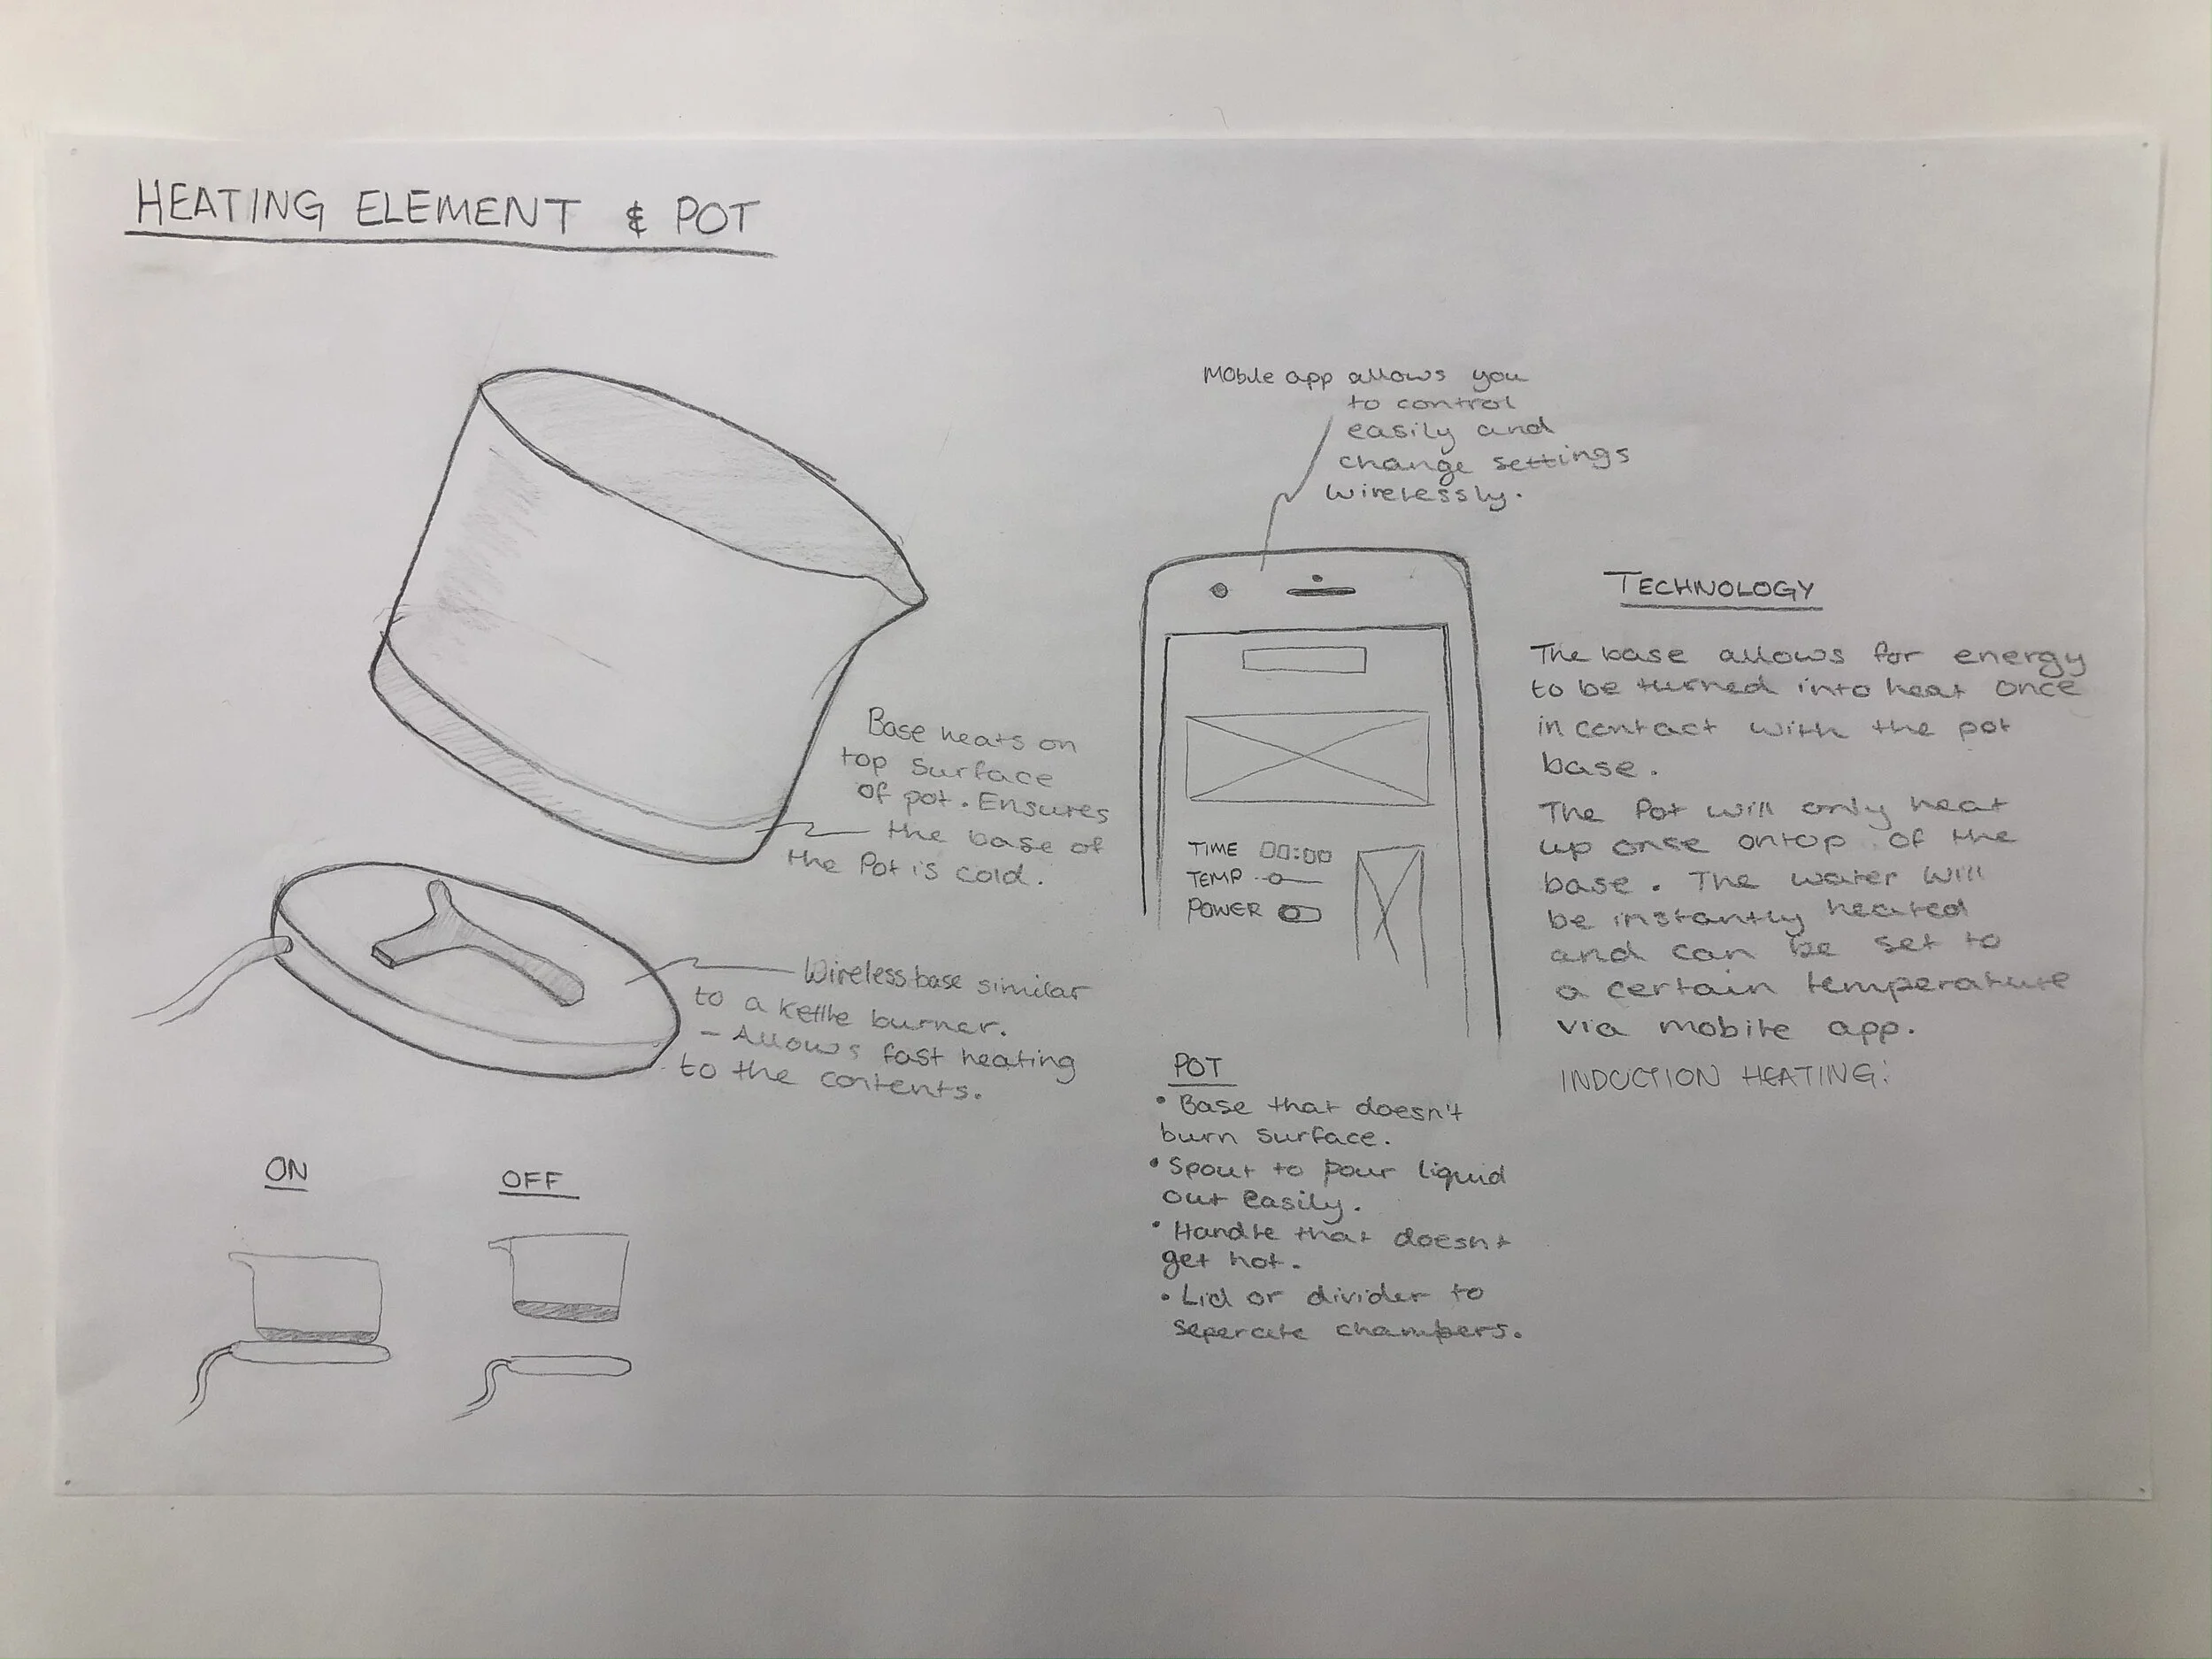 HEATING ELEMENT & POT
Mobile app allows you
to control
easily and
change settings
wirelessly.
Base heats on
top surface
of pot. Ensures
the base of
the Pot is cold.
Wireless base similar
to a kettle burner.
- Allows fast heating
to the contents.
ON
OFF
TIME 00:00
TEMP
POWER
TECHNOLOGY
The base allows for energy
to be turned into heat once
in contact with the pot
base.
The Pot will only heat
up onse ontop of the
base. The water will
be instantly heated
and can be set to
a certain temperature
via mobile app.
INDUCTION HEATING:
POT
• Base that doesn't
burn surface.
• Spout to pour liquid
out easily.
• Handle that doesn't
get hot.
• Lid or divider to
seperate chambers.